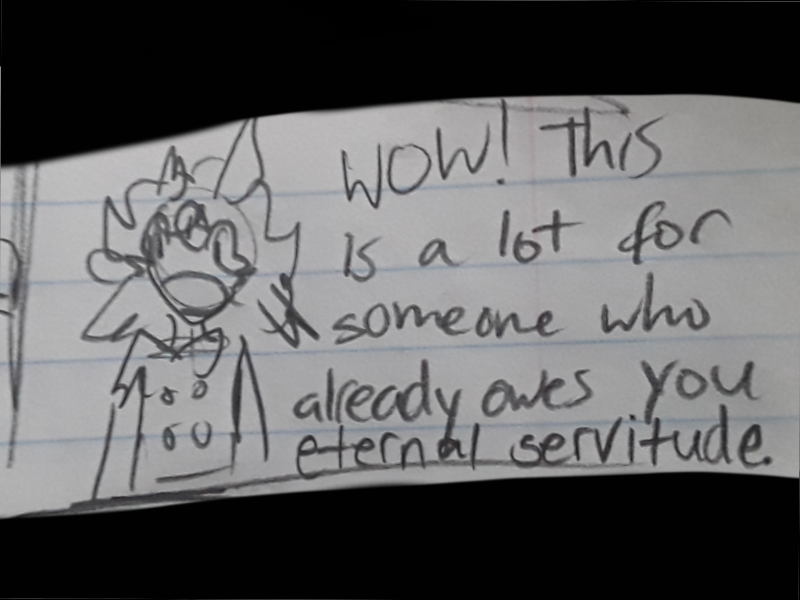 WOW! This
is a lot for
someone who
already owes you
eternal servitude.